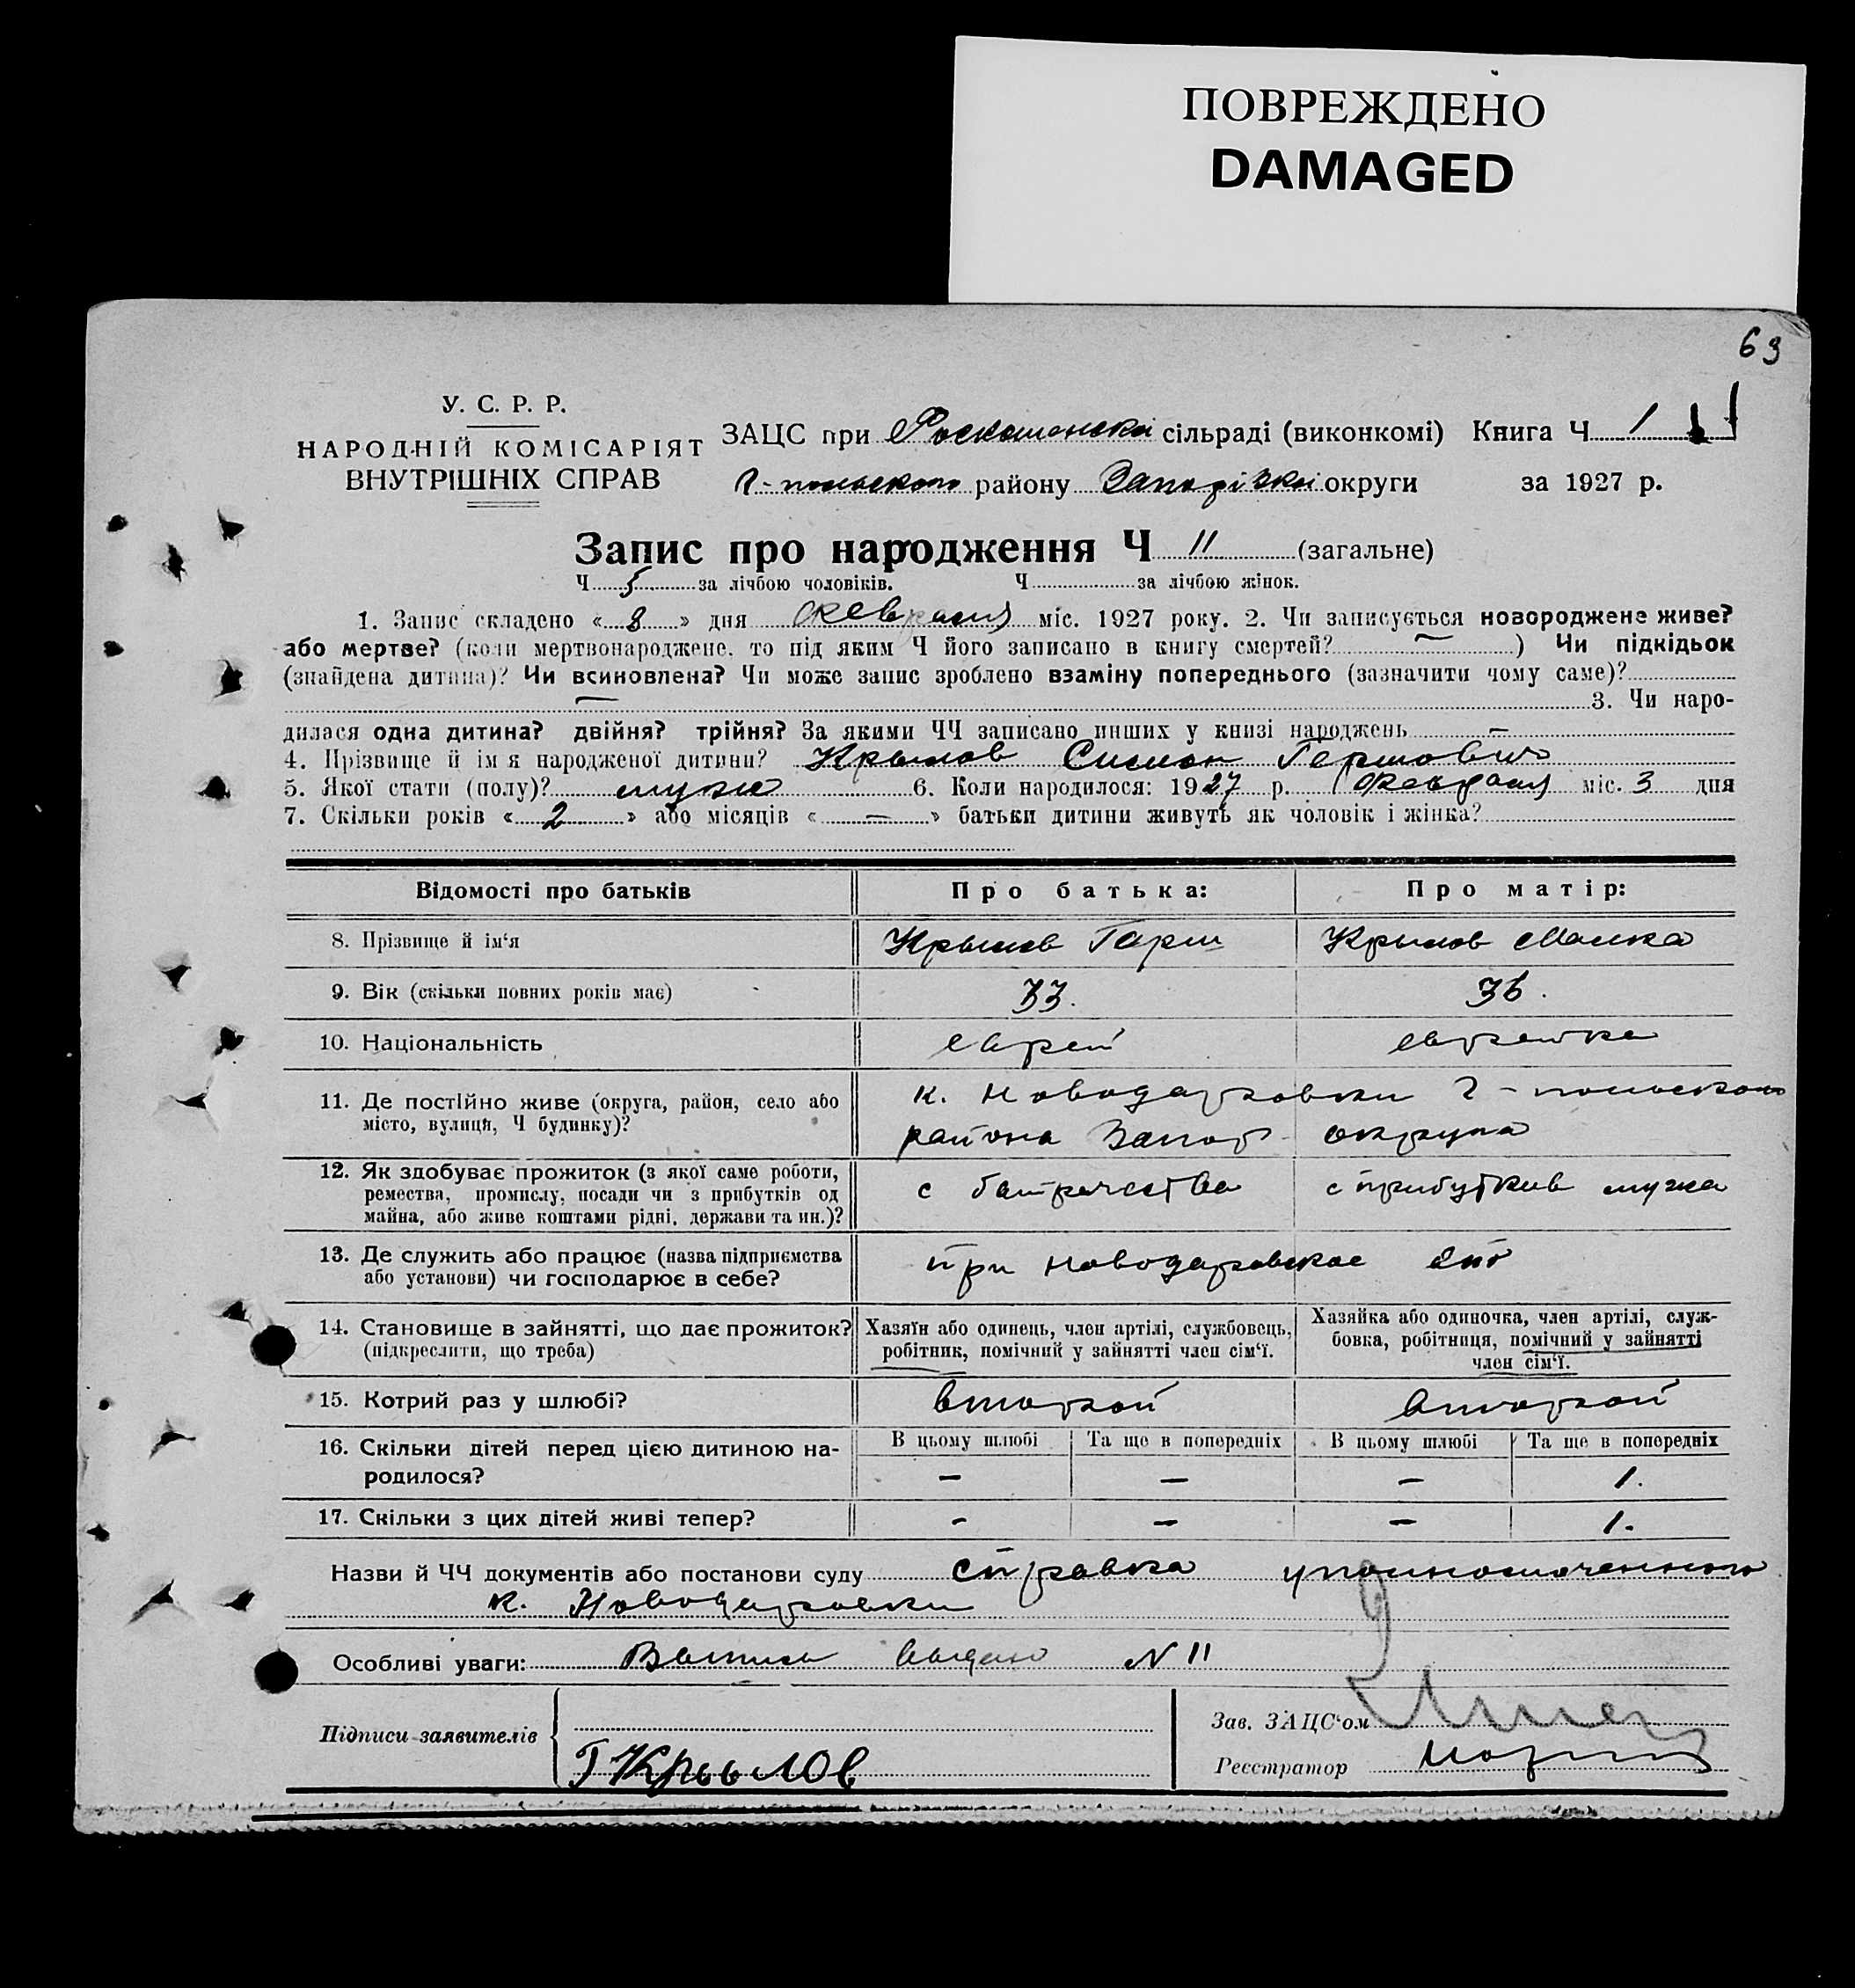 ПОВРЕЖДЕНО
DAMAGED
69
У. С. Р. Р.
НАРОДНІЙ КОМІСАРІЯТ
ВНУТРІШНІХ СПРАВ
ЗАЦС при сільраді (виконкомі) Книга Ч 1
г-польского району Запоріжкої округи за 1927 р.
Запис про народження Ч 11 (загальне)
Ч 5 за лічбою чоловіків. Ч за лічбою жінок.
1. Запис складено « 8 » дня февраля міс. 1927 року. 2. Чи записується новороджене живе?
або мертве? (коли мертвонароджене, то під яким Ч його записано в книгу смертей? — ) Чи підкідьок
(знайдена дитина)? Чи всиновлена? Чи може запис зроблено взаміну попереднього (зазначити чому саме)?
— 3. Чи наро-
дилася одна дитина? двійня? трійня? За якими ЧЧ записано инших у книзі народжень —
4. Прізвище й ім'я народженої дитини? Крылов Симон Гершович
5. Якої стати (полу)? муже 6. Коли народилося: 1927 р. Февраля міс. 3 дня
7. Скільки років « 2 » або місяців « — » батьки дитини живуть як чоловік і жінка?
Відомості про батьків Про батька: Про матір:
8. Прізвище й ім'я Крылов Герш Крылов Малка
9. Вік (скільки повних років має) 33. 36.
10. Національність еврей еврейка
11. Де постійно живе (округа, район, село або к. Новодаровки г-польского
місто, вулиця, Ч будинку)? района Запор округа
12. Як здобуває прожиток (з якої саме роботи, с батрачества с прибутков мужа
ремества, промислу, посади чи з прибутків од
майна, або живе коштами рідні, держави та ин.)?
13. Де служить або працює (назва підприємства при Новодаровское
або установи) чи господарює в себе?
14. Становище в зайнятті, що дає прожиток? Хазяїн або одинець, член артілі, службовець, Хазяйка або одиночка, член артілі, служ-
(підкреслити, що треба) робітник, помічний у зайнятті член сім'ї. бовка, робітниця, помічний у зайнятті
член сім'ї.
15. Котрий раз у шлюбі? второй второй
16. Скільки дітей перед цією дитиною на- В цьому шлюбі Та ще в попередніх В цьому шлюбі Та ще в попередніх
родилося? — — — 1.
17. Скільки з цих дітей живі тепер? - — — 1.
Назви й ЧЧ документів або постанови суду справка уполномоченного
к. Новодаровки
Особливі уваги: Выпись выдано N 11
Підписи заявителів Зав. ЗАЦС'ом
Г Крылов Реєстратор